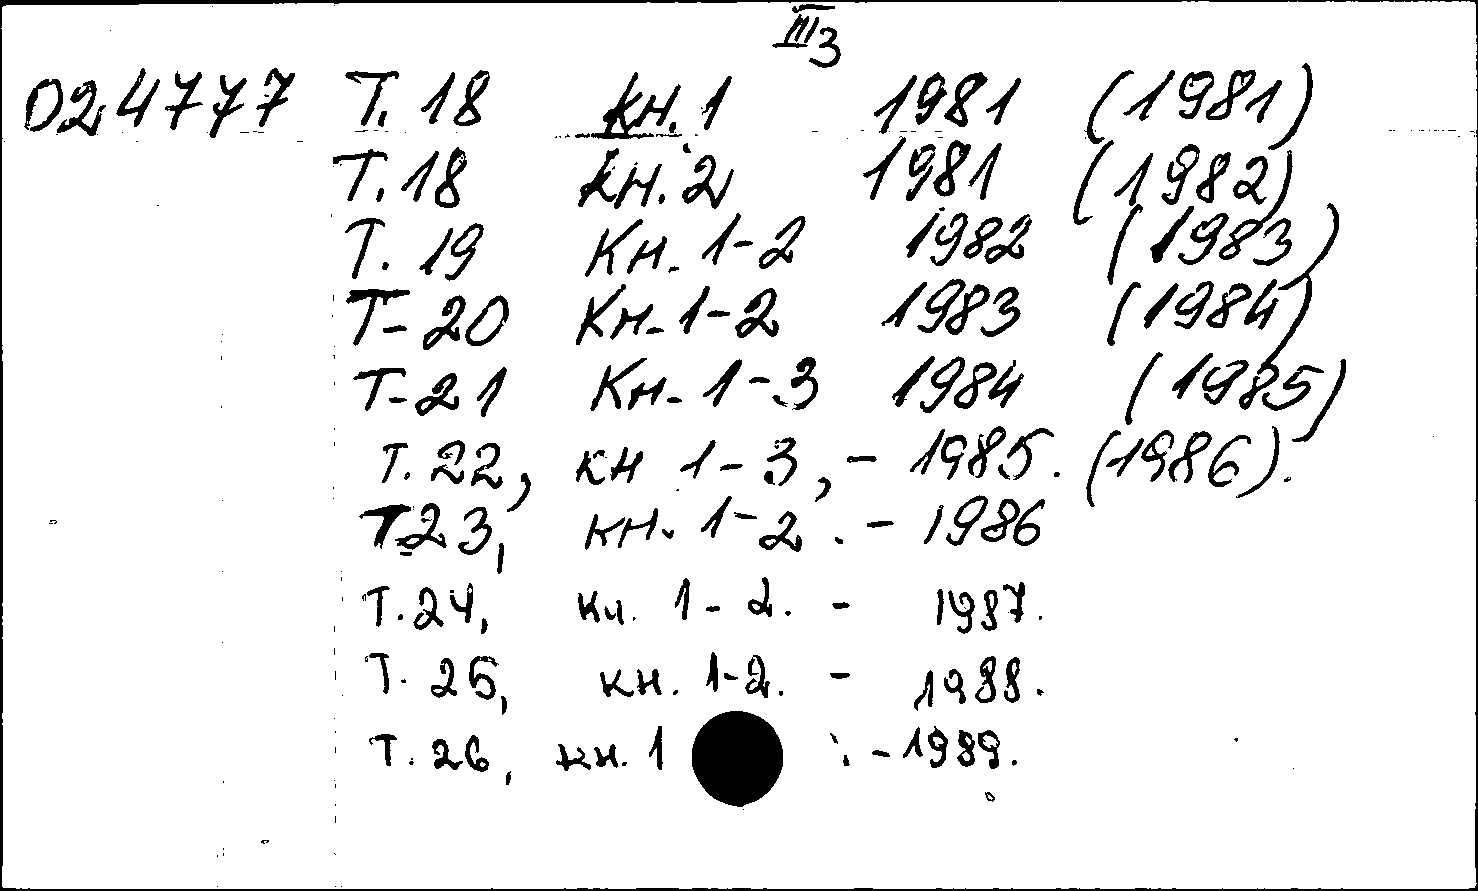 III 3
024777 Т. 18 кн. 1 1981 (1981)
Т. 18 кн. 2 1981 (1982)
Т. 19 Кн. 1-2 1982 (1983)
Т- 20 Кн- 1-2 1983 (1984)
Т- 21 Кн- 1-3 1984 (1985)
Т. 22, кн 1-3, - 1985. (1986).
Т23, кн. 1-2. - 1986
Т. 24, кн. 1-2. - 1987.
Т. 25, кн. 1-2. - 1988.
Т. 26, кн. 1 . - 1989.